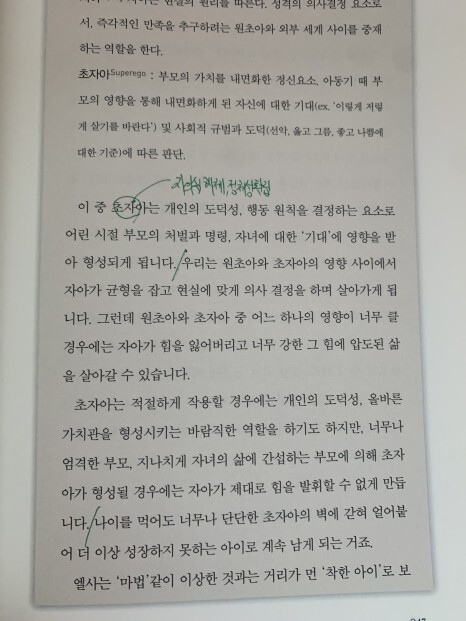 서, 즉각적인 만족을 추구하려는 원초아와 외부 세계 사이를 중재
하는 역할을 한다.
초자아Superego : 부모의 가치를 내면화한 정신요소. 아동기 때 부
모의 영향을 통해 내면화하게 된 자신에 대한 기대(ex. '이렇게 저렇
게 살기를 바란다') 및 사회적 규범과 도덕(선악, 옳고 그름, 좋고 나쁨에
대한 기준)에 따른 판단.
이 중 초자아는 개인의 도덕성, 행동 원칙을 결정하는 요소로
어린 시절 부모의 처벌과 명령, 자녀에 대한 '기대'에 영향을 받
아 형성되게 됩니다. 우리는 원초아와 초자아의 영향 사이에서
자아가 균형을 잡고 현실에 맞게 의사 결정을 하며 살아가게 됩
니다. 그런데 원초아와 초자아 중 어느 하나의 영향이 너무 클
경우에는 자아가 힘을 잃어버리고 너무 강한 그 힘에 압도된 삶
을 살아갈 수 있습니다.
초자아는 적절하게 작용할 경우에는 개인의 도덕성, 올바른
가치관을 형성시키는 바람직한 역할을 하기도 하지만, 너무나
엄격한 부모, 지나치게 자녀의 삶에 간섭하는 부모에 의해 초자
아가 형성될 경우에는 자아가 제대로 힘을 발휘할 수 없게 만듭
니다. 나이를 먹어도 너무나 단단한 초자아의 벽에 갇혀 얼어붙
어 더 이상 성장하지 못하는 아이로 계속 남게 되는 거죠.
엘사는 '마법'같이 이상한 것과는 거리가 먼 '착한 아이'로 보